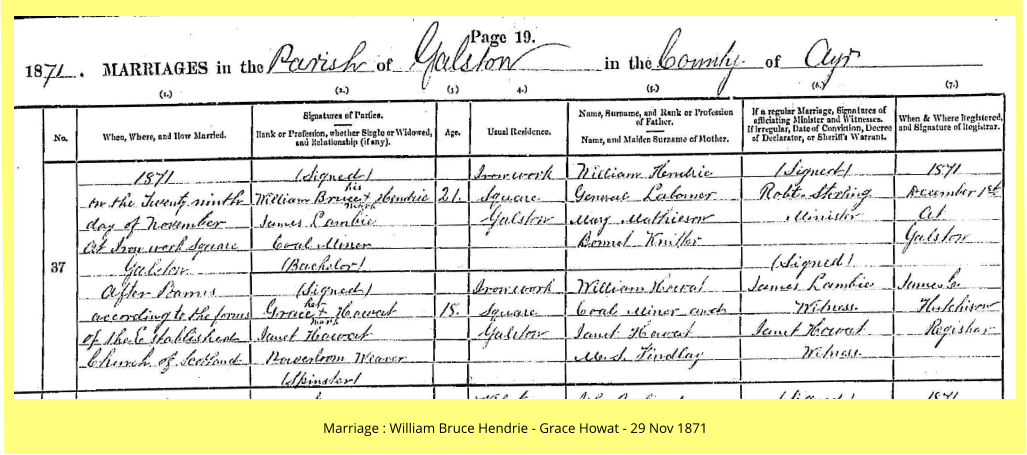 Page 19.
1871. MARRIAGES in the Parish of Galston in the County of Ayr
(1.) (2.) (3.) 4.) (5.) (6.) (7.)
No.
When, Where, and How Married.
Signatures of Parties.
Rank or Profession, whether Single or Widowed,
and Relationship (if any).
Age.
Usual Residence.
Name, Surname, and Rank or Profession
of Father.
Name, and Maiden Surname of Mother.
If a regular Marriage, Signatures of
officiating Minister and Witnesses.
If irregular, Date of Conviction, Decree
of Declarator, or Sheriff's Warrant.
When & Where Registered,
and Signature of Registrar.
37
1871
on the Twenty ninth
day of November
At Iron work Square
Galston
After Banns
according to the forms
of the Established
Church of Scotland
(Signed)
his
William Bruce + Hendrie
mark
James Lambie
Coal Miner
(Bachelor)
(Signed)
her
Grace + Howat
mark
Janet Howat
Powerloom Weaver
(Spinster)
21.
18.
Ironwork
Square
Galston
Ironwork
Square
Galston
William Hendrie
General Labourer
Mary Mathieson
Bonnet Knitter
William Howat
Coal Miner and
Janet Howat
M.S. Findlay
(Signed)
Robt. Stirling
Minister
(Signed)
James Lambie
Witness.
Janet Howat
Witness.
1871
December 1st
At
Galston
James C.
Hutchison
Registrar
1871
Marriage : William Bruce Hendrie - Grace Howat - 29 Nov 1871